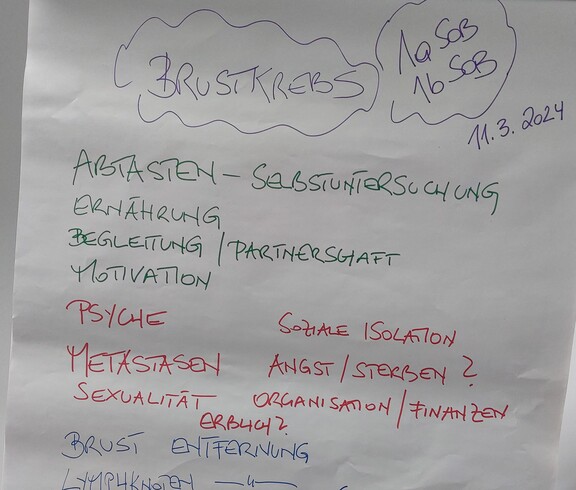 BRUSTKREBS
1a SOB
1b SOB
11.3.2024
ABTASTEN – SELBSTUNTERSUCHUNG
ERNÄHRUNG
BEGLEITUNG / PARTNERSCHAFT
MOTIVATION
PSYCHE SOZIALE ISOLATION
METASTASEN ANGST / STERBEN ?
SEXUALITÄT ORGANISATION / FINANZEN
ERBLICH?
BRUST ENTFERNUNG
LYMPHKNOTEN —"—